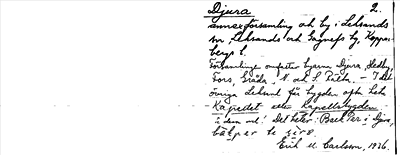 Djura 2.
annexförsamling och by i Leksands
sn, Leksands och Gagnefs tg, Koppar-
bergs l.
Församlingen omfattar byarna Djura, Hedby,
Fors, Gråda, N. och S. – I det
övriga Leksand får bygden ofta heta
Kapellet eller Kapellsbygden
i dem. Det heter: i Djura,
Erik O. Carlsson, 1926.